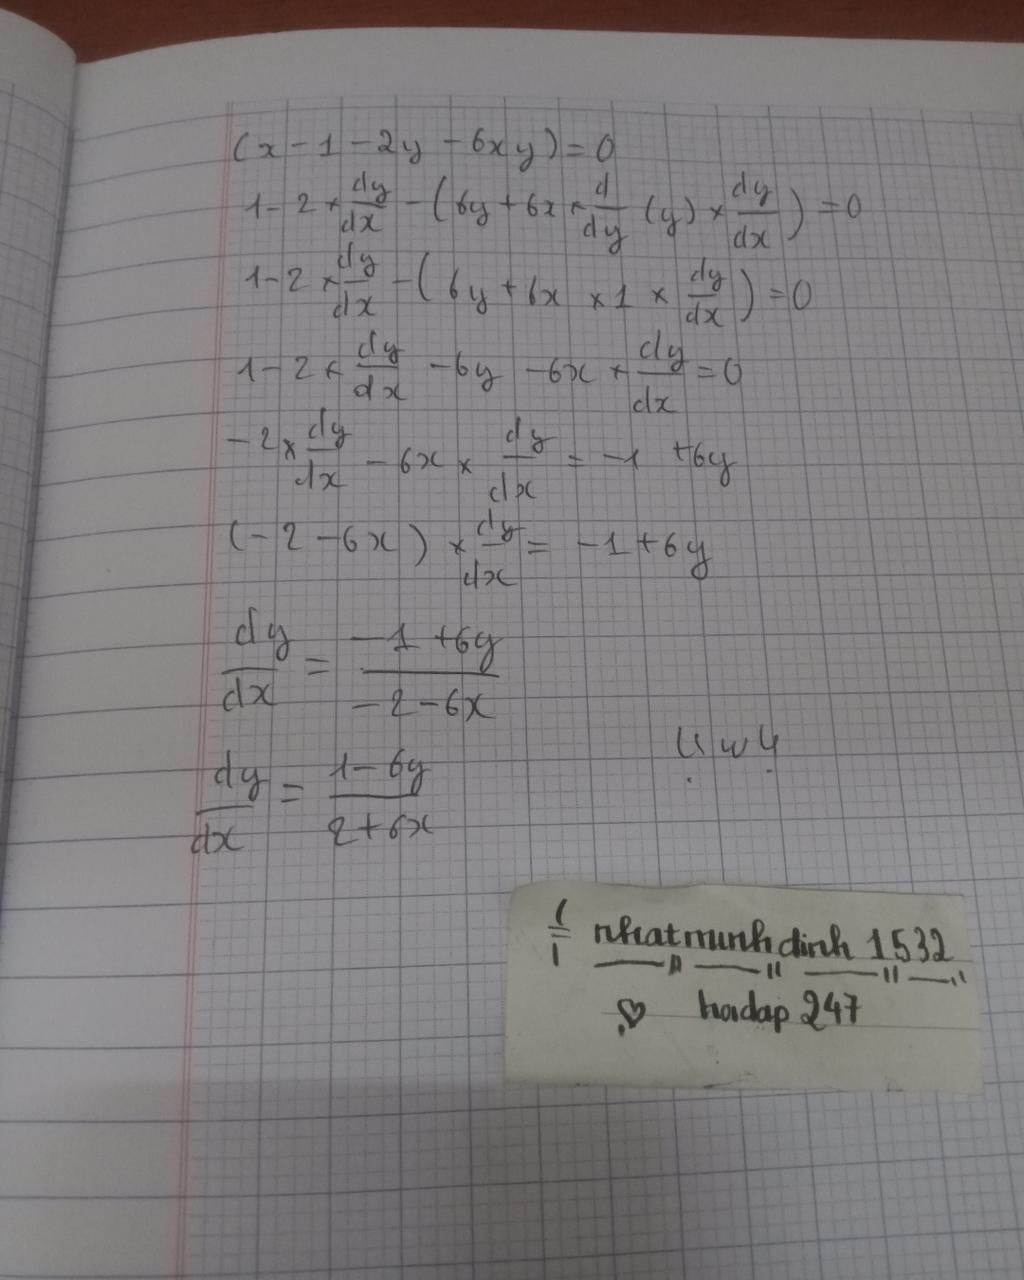 (x - 1 - 2y - 6xy) = 0
1 - 2 × dy/dx - (6y + 6x × d/dy (y) × dy/dx) = 0
1 - 2 × dy/dx - (6y + 6x × 1 × dy/dx) = 0
1 - 2 × dy/dx - 6y - 6x × dy/dx = 0
-2 × dy/dx - 6x × dy/dx = -1 + 6y
(-2 - 6x) × dy/dx = -1 + 6y
dy/dx = (-1 + 6y)/(-2 - 6x)
UwU
dy/dx = (1 - 6y)/(2 + 6x)
nhatminhdinh 1532
♡ hoidap 247